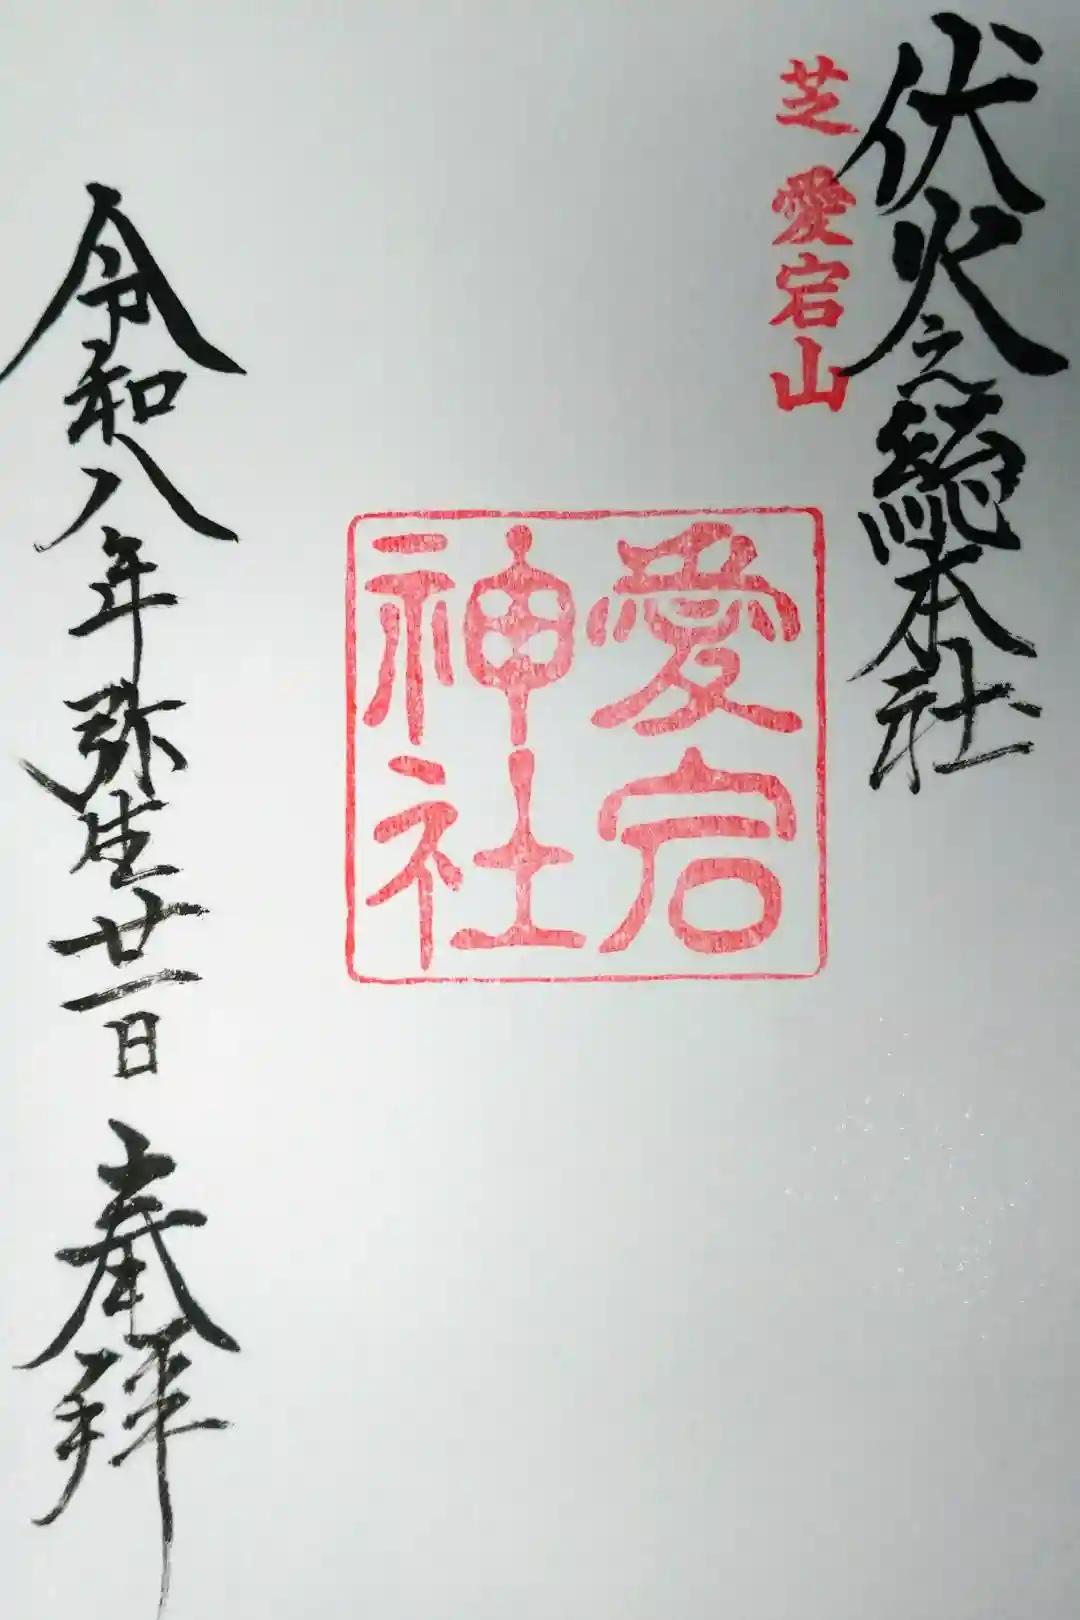 伏火之総本社
芝愛宕山
愛宕
神社
令和八年弥生廿一日 奉拝